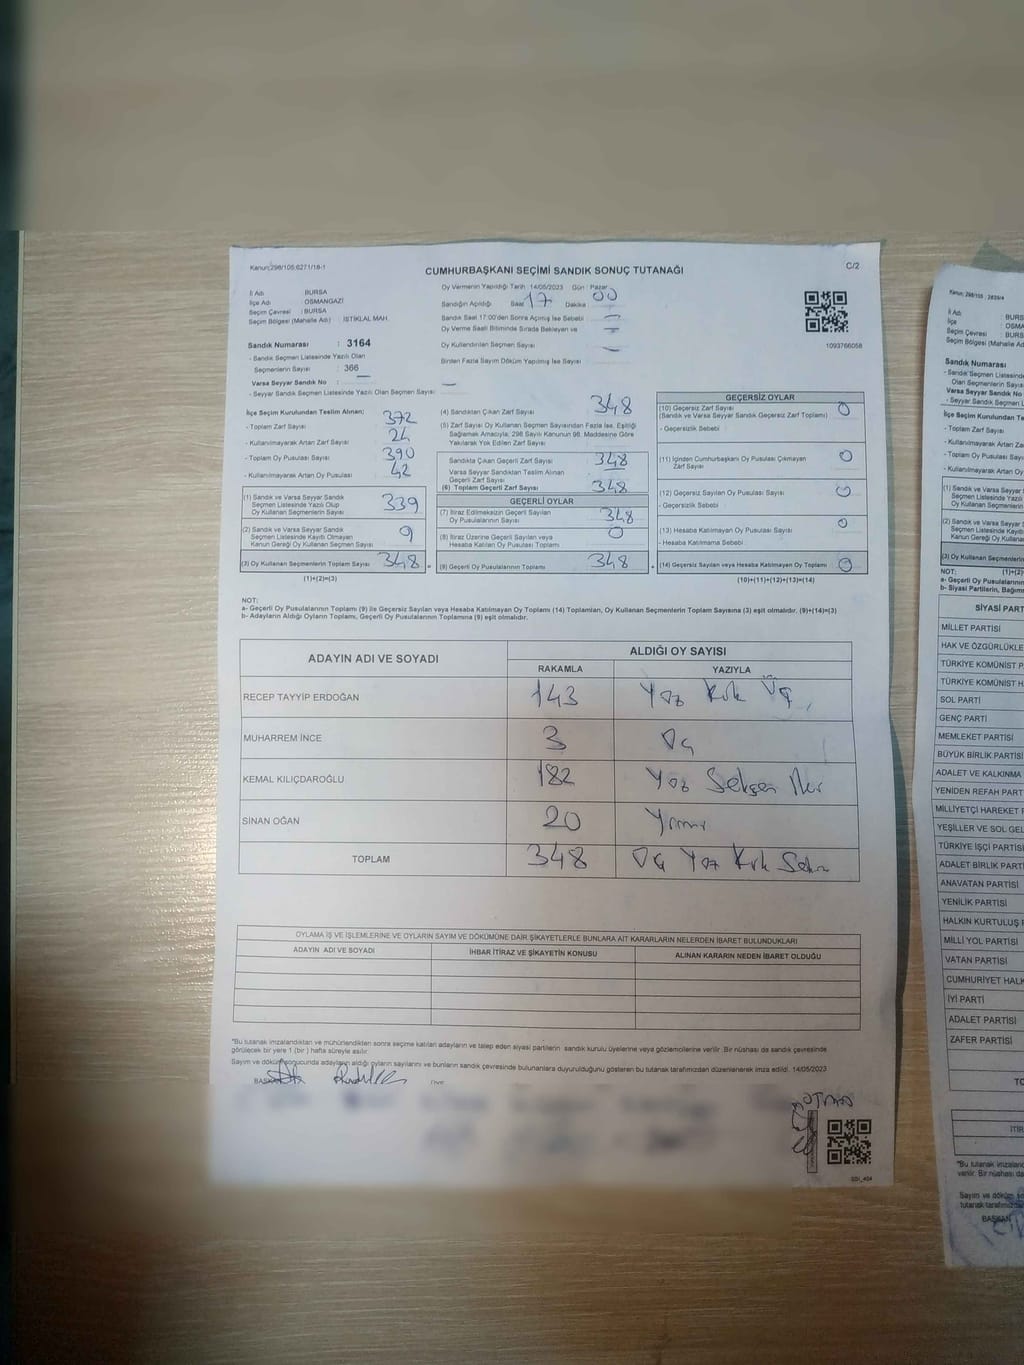 Kanun:298/105:6271/18-1
CUMHURBAŞKANI SEÇİMİ SANDIK SONUÇ TUTANAĞI
C/2
İl Adı : BURSA
İlçe Adı : OSMANGAZİ
Seçim Çevresi : BURSA
Seçim Bölgesi (Mahalle Adı) : İSTİKLAL MAH.
Oy Vermenin Yapıldığı Tarih 14/05/2023 Gün : Pazar
Sandığın Açıldığı Saat 17 Dakika 00
Sandık Saat 17:00'den Sonra Açılmış İse Sebebi
Oy Verme Saati Bitiminde Sırada Bekleyen ve
Oy Kullandırılan Seçmen Sayısı
Birden Fazla Sayım Döküm Yapılmış İse Sayısı
1093766058
Sandık Numarası : 3164
- Sandık Seçmen Listesinde Yazılı Olan
Seçmenlerin Sayısı : 366
Varsa Seyyar Sandık No :
- Seyyar Sandık Seçmen Listesinde Yazılı Olan Seçmen Sayısı
İlçe Seçim Kurulundan Teslim Alınan;
- Toplam Zarf Sayısı 372
- Kullanılmayarak Artan Zarf Sayısı 24
- Toplam Oy Pusulası Sayısı 390
- Kullanılmayarak Artan Oy Pusulası 42
(1) Sandık ve Varsa Seyyar Sandık
Seçmen Listesinde Yazılı Olup
Oy Kullanan Seçmenlerin Sayısı 339
(2) Sandık ve Varsa Seyyar Sandık
Seçmen Listesinde Kayıtlı Olmayan
Kanun Gereği Oy Kullanan Seçmen Sayısı 9
(3) Oy Kullanan Seçmenlerin Toplam Sayısı 348 =
(1)+(2)=(3)
(4) Sandıktan Çıkan Zarf Sayısı 348
(5) Zarf Sayısı Oy Kullanan Seçmen Sayısından Fazla İse, Eşitliği
Sağlamak Amacıyla; 298 Sayılı Kanunun 98. Maddesine Göre
Yakılarak Yok Edilen Zarf Sayısı
Sandıkta Çıkan Geçerli Zarf Sayısı 348
Varsa Seyyar Sandıktan Teslim Alınan
Geçerli Zarf Sayısı
(6) Toplam Geçerli Zarf Sayısı 348
GEÇERLİ OYLAR
(7) İtiraz Edilmeksizin Geçerli Sayılan
Oy Pusulalarının Sayısı 348
(8) İtiraz Üzerine Geçerli Sayılan veya
Hesaba Katılan Oy Pusulası Toplamı 0
(9) Geçerli Oy Pusulalarının Toplamı 348 +
GEÇERSİZ OYLAR
(10) Geçersiz Zarf Sayısı 0
(Sandık ve Varsa Seyyar Sandık Geçersiz Zarf Toplamı)
- Geçersizlik Sebebi :
(11) İçinden Cumhurbaşkanı Oy Pusulası Çıkmayan 0
Zarf Sayısı
(12) Geçersiz Sayılan Oy Pusulası Sayısı 0
- Geçersizlik Sebebi :
(13) Hesaba Katılmayan Oy Pusulası Sayısı 0
- Hesaba Katılmama Sebebi :
(14) Geçersiz Sayılan veya Hesaba Katılmayan Oy Toplamı 0
(10)+(11)+(12)+(13)=(14)
NOT:
a- Geçerli Oy Pusulalarının Toplamı (9) ile Geçersiz Sayılan veya Hesaba Katılmayan Oy Toplamı (14) Toplamları, Oy Kullanan Seçmenlerin Toplam Sayısına (3) eşit olmalıdır. (9)+(14)=(3)
b- Adayların Aldığı Oyların Toplamı, Geçerli Oy Pusulalarının Toplamına (9) eşit olmalıdır.
ADAYIN ADI VE SOYADI
ALDIĞI OY SAYISI
RAKAMLA YAZIYLA
RECEP TAYYİP ERDOĞAN 143 Yüz Kırk Üç
MUHARREM İNCE 3 Üç
KEMAL KILIÇDAROĞLU 182 Yüz Seksen İki
SİNAN OĞAN 20 Yirmi
TOPLAM 348 Üç Yüz Kırk Sekiz
OYLAMA İŞ VE İŞLEMLERİNE VE OYLARIN SAYIM VE DÖKÜMÜNE DAİR ŞİKAYETLERLE BUNLARA AİT KARARLARIN NELERDEN İBARET BULUNDUKLARI
ADAYIN ADI VE SOYADI
İHBAR İTİRAZ VE ŞİKAYETİN KONUSU
ALINAN KARARIN NEDEN İBARET OLDUĞU
*Bu tutanak imzalandıktan ve mühürlendikten sonra seçime katılan adayların ve talep eden siyasi partilerin sandık kurulu üyelerine veya gözlemcilerine verilir. Bir nüshası da sandık çevresinde
görülecek bir yere 1 (bir ) hafta süreyle asılır.
Sayım ve döküm sonucunda adayların aldığı oyların sayılarını ve bunların sandık çevresinde bulunanlara duyurulduğunu gösteren bu tutanak tarafımızdan düzenlenerek imza edildi. 14/05/2023
BAŞKAN
Üye
Kanun: 298/105 : 2839/4
İl Adı : BURS
İlçe : OSMA
Seçim Çevresi : BURS
Seçim Bölgesi (Mahalle Ad
Sandık Numarası
- Sandık Seçmen Listesinde
Olan Seçmenlerin Sayısı
Varsa Seyyar Sandık No
- Seyyar Sandık Seçmen L
İlçe Seçim Kurulundan T
- Toplam Zarf Sayısı
- Kullanılmayarak Artan Za
- Toplam Oy Pusulası Sayıs
- Kullanılmayarak Artan Oy
(1) Sandık ve Varsa Seyya
Seçmen Listesinde Yazılı
Oy Kullanan Seçmenlerin
(2) Sandık ve Varsa Seyya
Seçmen Listesinde Kayıtl
Kanun Gereği Oy Kullan
(3) Oy Kullanan Seçmenlerin
NOT: (1)+(2)
a- Geçerli Oy Pusulalarının
b- Siyasi Partilerin, Bağıms
SİYASİ PART
MİLLET PARTİSİ
HAK VE ÖZGÜRLÜKLE
TÜRKİYE KOMÜNİST P
TÜRKİYE KOMÜNİST H
SOL PARTİ
GENÇ PARTİ
MEMLEKET PARTİSİ
BÜYÜK BİRLİK PARTİSİ
ADALET VE KALKINMA
YENİDEN REFAH PART
MİLLİYETÇİ HAREKET P
YEŞİLLER VE SOL GEL
TÜRKİYE İŞÇİ PARTİSİ
ADALET BİRLİK PARTİ
ANAVATAN PARTİSİ
YENİLİK PARTİSİ
HALKIN KURTULUŞ P
MİLLİ YOL PARTİSİ
VATAN PARTİSİ
CUMHURİYET HALK
İYİ PARTİ
ADALET PARTİSİ
ZAFER PARTİSİ
TO
İTİR
*Bu tutanak imzaland
verilir. Bir nüshası da
Sayım ve döküm so
tutanak tarafımızdan
BAŞKAN